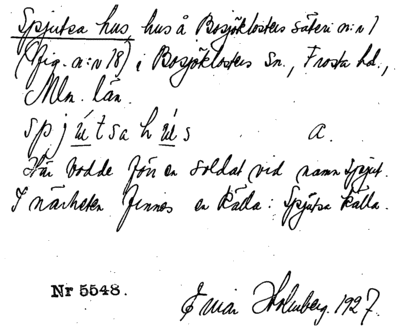 Spjutsa hus hus å Bosjöklosters säteri n:r 1
(fig. n:r 18) i Bosjöklosters Sn., Frosta hd.,
Mlm. län.
spjútsahús a.
Här bodde förr en soldat vid namn Spjut.
I närheten finnes en källa: Spjutsa källa.
Nr 5548.
Einar Holmberg. 1927.